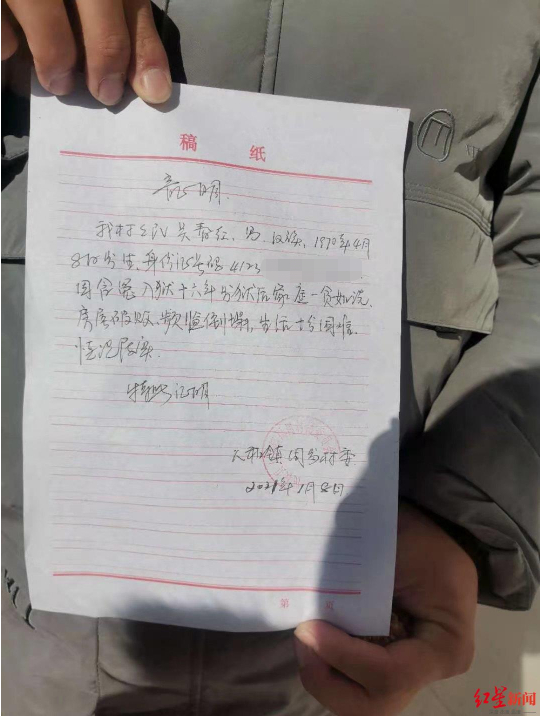 稿 纸
证明
我村村民吴春红,男,汉族,1970年4月
8日出生,身份证号码4123
因含冤入狱十六年,出狱后家庭一贫如洗,
房屋破败,频临倒塌,生活十分困难.
情况属实.
特此证明
镇周岗村委
2021年1月 日
第 页
红星新闻